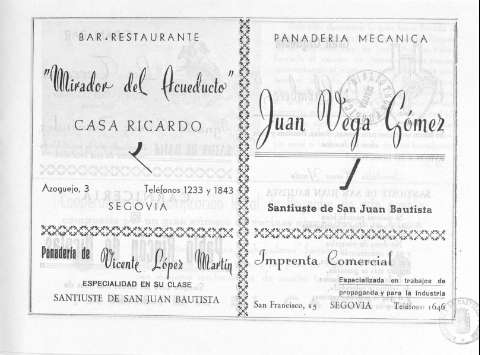 BAR-RESTAURANTE
"Mirador del Acueducto"
CASA RICARDO
Azoguejo, 3 Telefonos 1233 y 1843
SEGOVIA
Panadería de Vicente López Martín
ESPECIALIDAD EN SU CLASE
SANTIUSTE DE SAN JUAN BAUTISTA
PANADERIA MECANICA
Juan Vega Gómez
Santiuste de San Juan Bautista
Imprenta Comercial
Especializada en trabajos de
propaganda y para la industria
San Francisco, 15 SEGOVIA Teléfono 1646